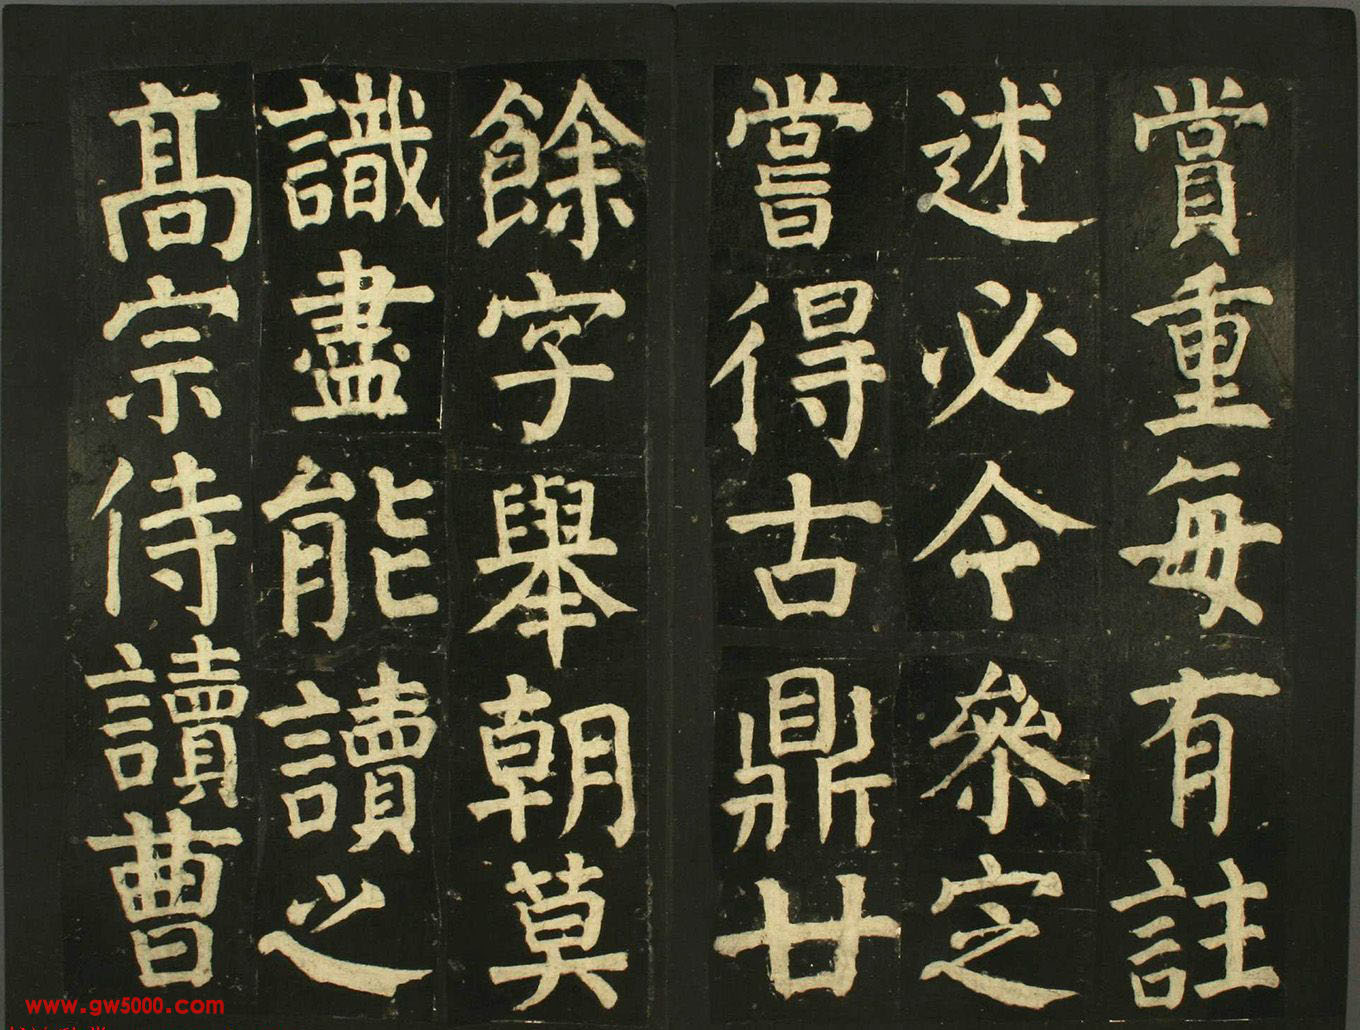 賞重每有註
述必令參定
嘗得古鼎廿
餘字舉朝莫
識盡能讀之
高宗侍讀曹
www.gw5000.com